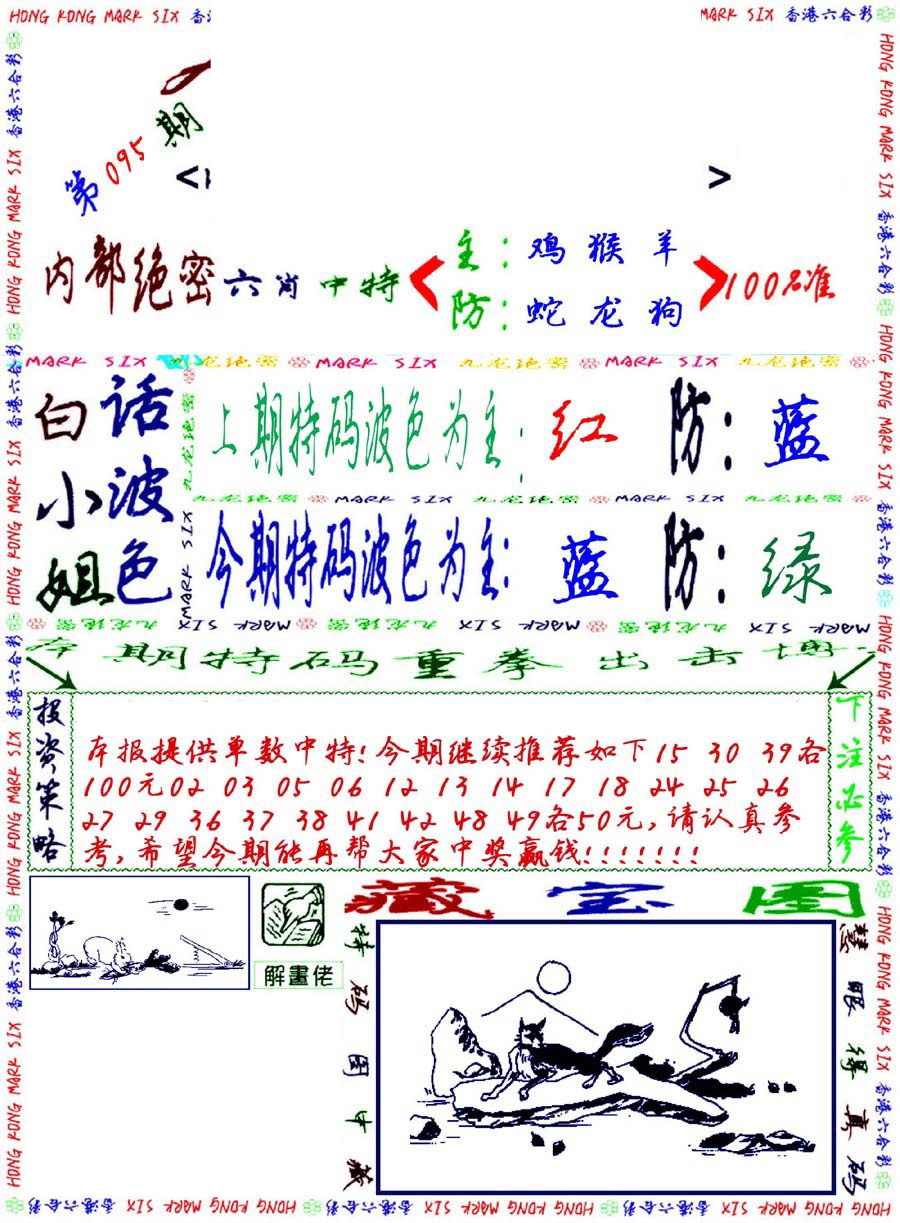 HONG KONG MARK SIX 香港
MARK SIX 香港六合彩
第095期
< >
内部绝密六肖中特
主：鸡猴羊
防：蛇龙狗
100%准
MARK SIX 九龙绝密 MARK SIX 九龙绝密 MARK SIX 九龙绝密
白小姐
话波色
上期特码波色为主：红 防：蓝
九龙绝密 MARK SIX 九龙绝密 MARK SIX 九龙绝密
今期特码波色为主：蓝 防：绿
MARK SIX 九龙绝密 MARK SIX 九龙绝密 MARK SIX 九龙绝密
本期特码重拳出击博
投资策略
本报提供单数中特!今期继续推荐如下15 30 39各
100元02 03 05 06 12 13 14 17 18 24 25 26
27 29 36 37 38 41 42 48 49各50元,请认真参
考,希望今期能再帮大家中奖赢钱!!!!!!!
下注必参
解畫佬
藏宝图
特码图中藏
慧眼得真码
HONG KONG MARK SIX 香港六合彩 HONG KONG MARK SIX 香港六合彩 HONG KONG MARK SIX 香港六合彩